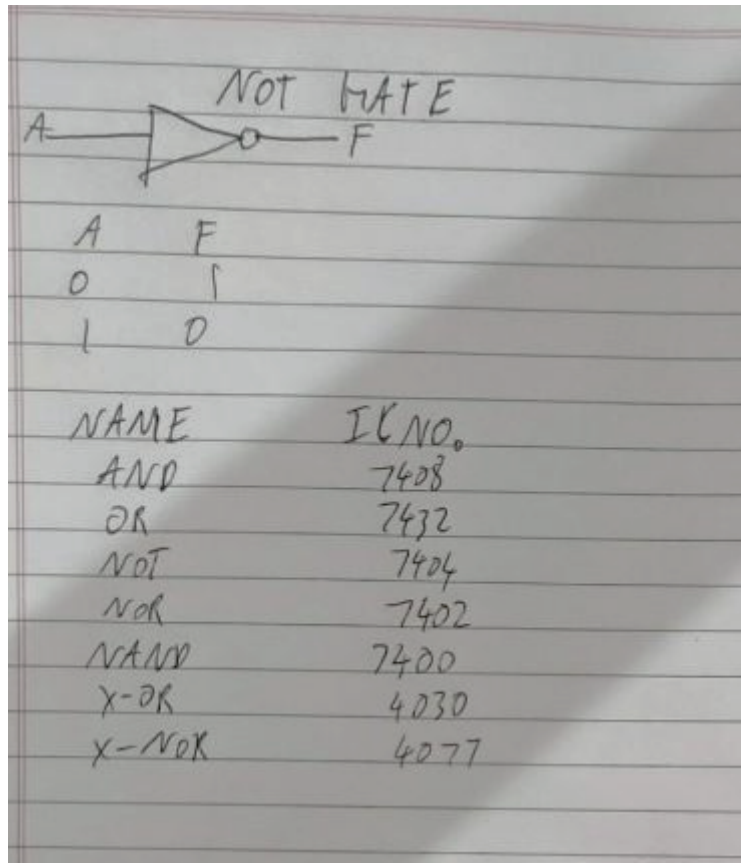 NOT GATE
A F
A F
0 1
1 0
NAME IC NO.
AND 7408
OR 7432
NOT 7404
NOR 7402
NAND 7400
X-OR 4030
X-NOR 4077